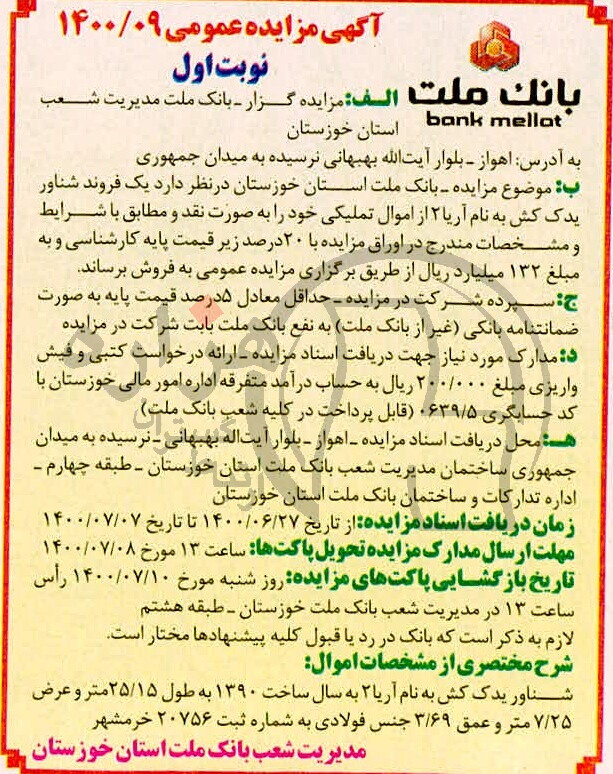 آگهی مزایده عمومی ۱۴۰۰/۰۹
نوبت اول
بانک ملت
bank mellat
الف: مزایده گزار ـ بانک ملت مدیریت شعب
استان خوزستان
به آدرس: اهواز ـ بلوار آیت‌الله بهبهانی نرسیده به میدان جمهوری
ب: موضوع مزایده ـ بانک ملت استان خوزستان درنظر دارد یک فروند شناور
یدک کش به نام آریا۲ از اموال تملیکی خود را به صورت نقد و مطابق با شرایط
و مشخصات مندرج در اوراق مزایده با ۲۰درصد زیر قیمت پایه کارشناسی و به
مبلغ ۱۳۲ میلیارد ریال از طریق برگزاری مزایده عمومی به فروش برساند.
ج: سپرده شرکت در مزایده ـ حداقل معادل ۵درصد قیمت پایه به صورت
ضمانتنامه بانکی (غیر از بانک ملت) به نفع بانک ملت بابت شرکت در مزایده
د: مدارک مورد نیاز جهت دریافت اسناد مزایده ـ ارائه درخواست کتبی و فیش
واریزی مبلغ ۲۰۰/۰۰۰ ریال به حساب درآمد متفرقه اداره امور مالی خوزستان با
کد حسابگری ۰۶۳۹/۵ (قابل پرداخت در کلیه شعب بانک ملت)
هـ: محل دریافت اسناد مزایده ـ اهواز ـ بلوار آیت‌اله بهبهانی ـ نرسیده به میدان
جمهوری ساختمان مدیریت شعب بانک ملت استان خوزستان ـ طبقه چهارم ـ
اداره تدارکات و ساختمان بانک ملت استان خوزستان
زمان دریافت اسناد مزایده: از تاریخ ۱۴۰۰/۰۶/۲۷ تا تاریخ ۱۴۰۰/۰۷/۰۷
مهلت ارسال مدارک مزایده تحویل پاکت‌ها: ساعت ۱۳ مورخ ۱۴۰۰/۰۷/۰۸
تاریخ بازگشایی پاکت‌های مزایده: روز شنبه مورخ ۱۴۰۰/۰۷/۱۰ رأس
ساعت ۱۳ در مدیریت شعب بانک ملت خوزستان ـ طبقه هشتم
لازم به ذکر است که بانک در رد یا قبول کلیه پیشنهادها مختار است.
شرح مختصری از مشخصات اموال:
شناور یدک کش به نام آریا۲ به سال ساخت ۱۳۹۰ به طول ۲۵/۱۵متر و عرض
۷/۲۵ متر و عمق ۳/۶۹ جنس فولادی به شماره ثبت ۲۰۷۵۶ خرمشهر
مدیریت شعب بانک ملت استان خوزستان